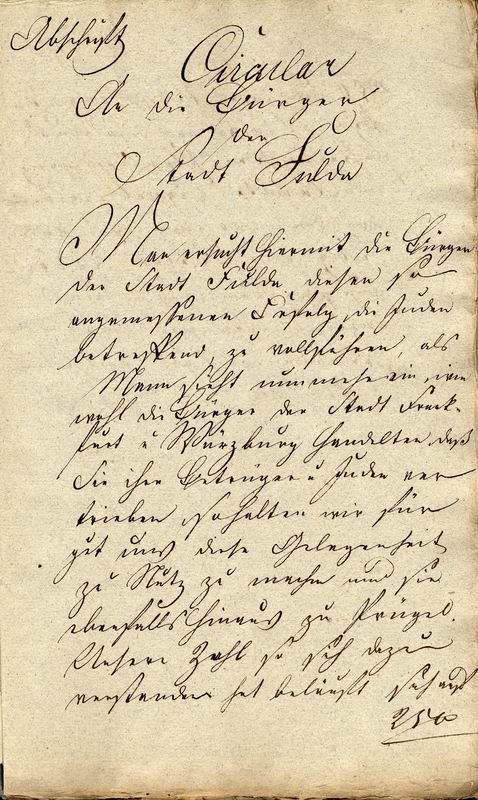 Abschrift
Circular
An die Bürger
der
Stadt Fulda
Man ersucht hiermit die Bürger
der Stadt Fulda diesen so
angemessenen Erfolg, die Juden
betreffend, zu vollführen, als
Mann sieht nunmehr ein, wie
wohl die Bürger der Stadt Frank-
furt u Würzburg handelten, daß
Sie ihre Betrüger u Juden ver
trieben, so halten wir für
gut uns diese Gelegenheit
zu Nutz zu machen und sie
ebenfalls hinaus zu Prügel.
Unsere Zahl so sich dazu
verstanden hat beläuft sich auf
250